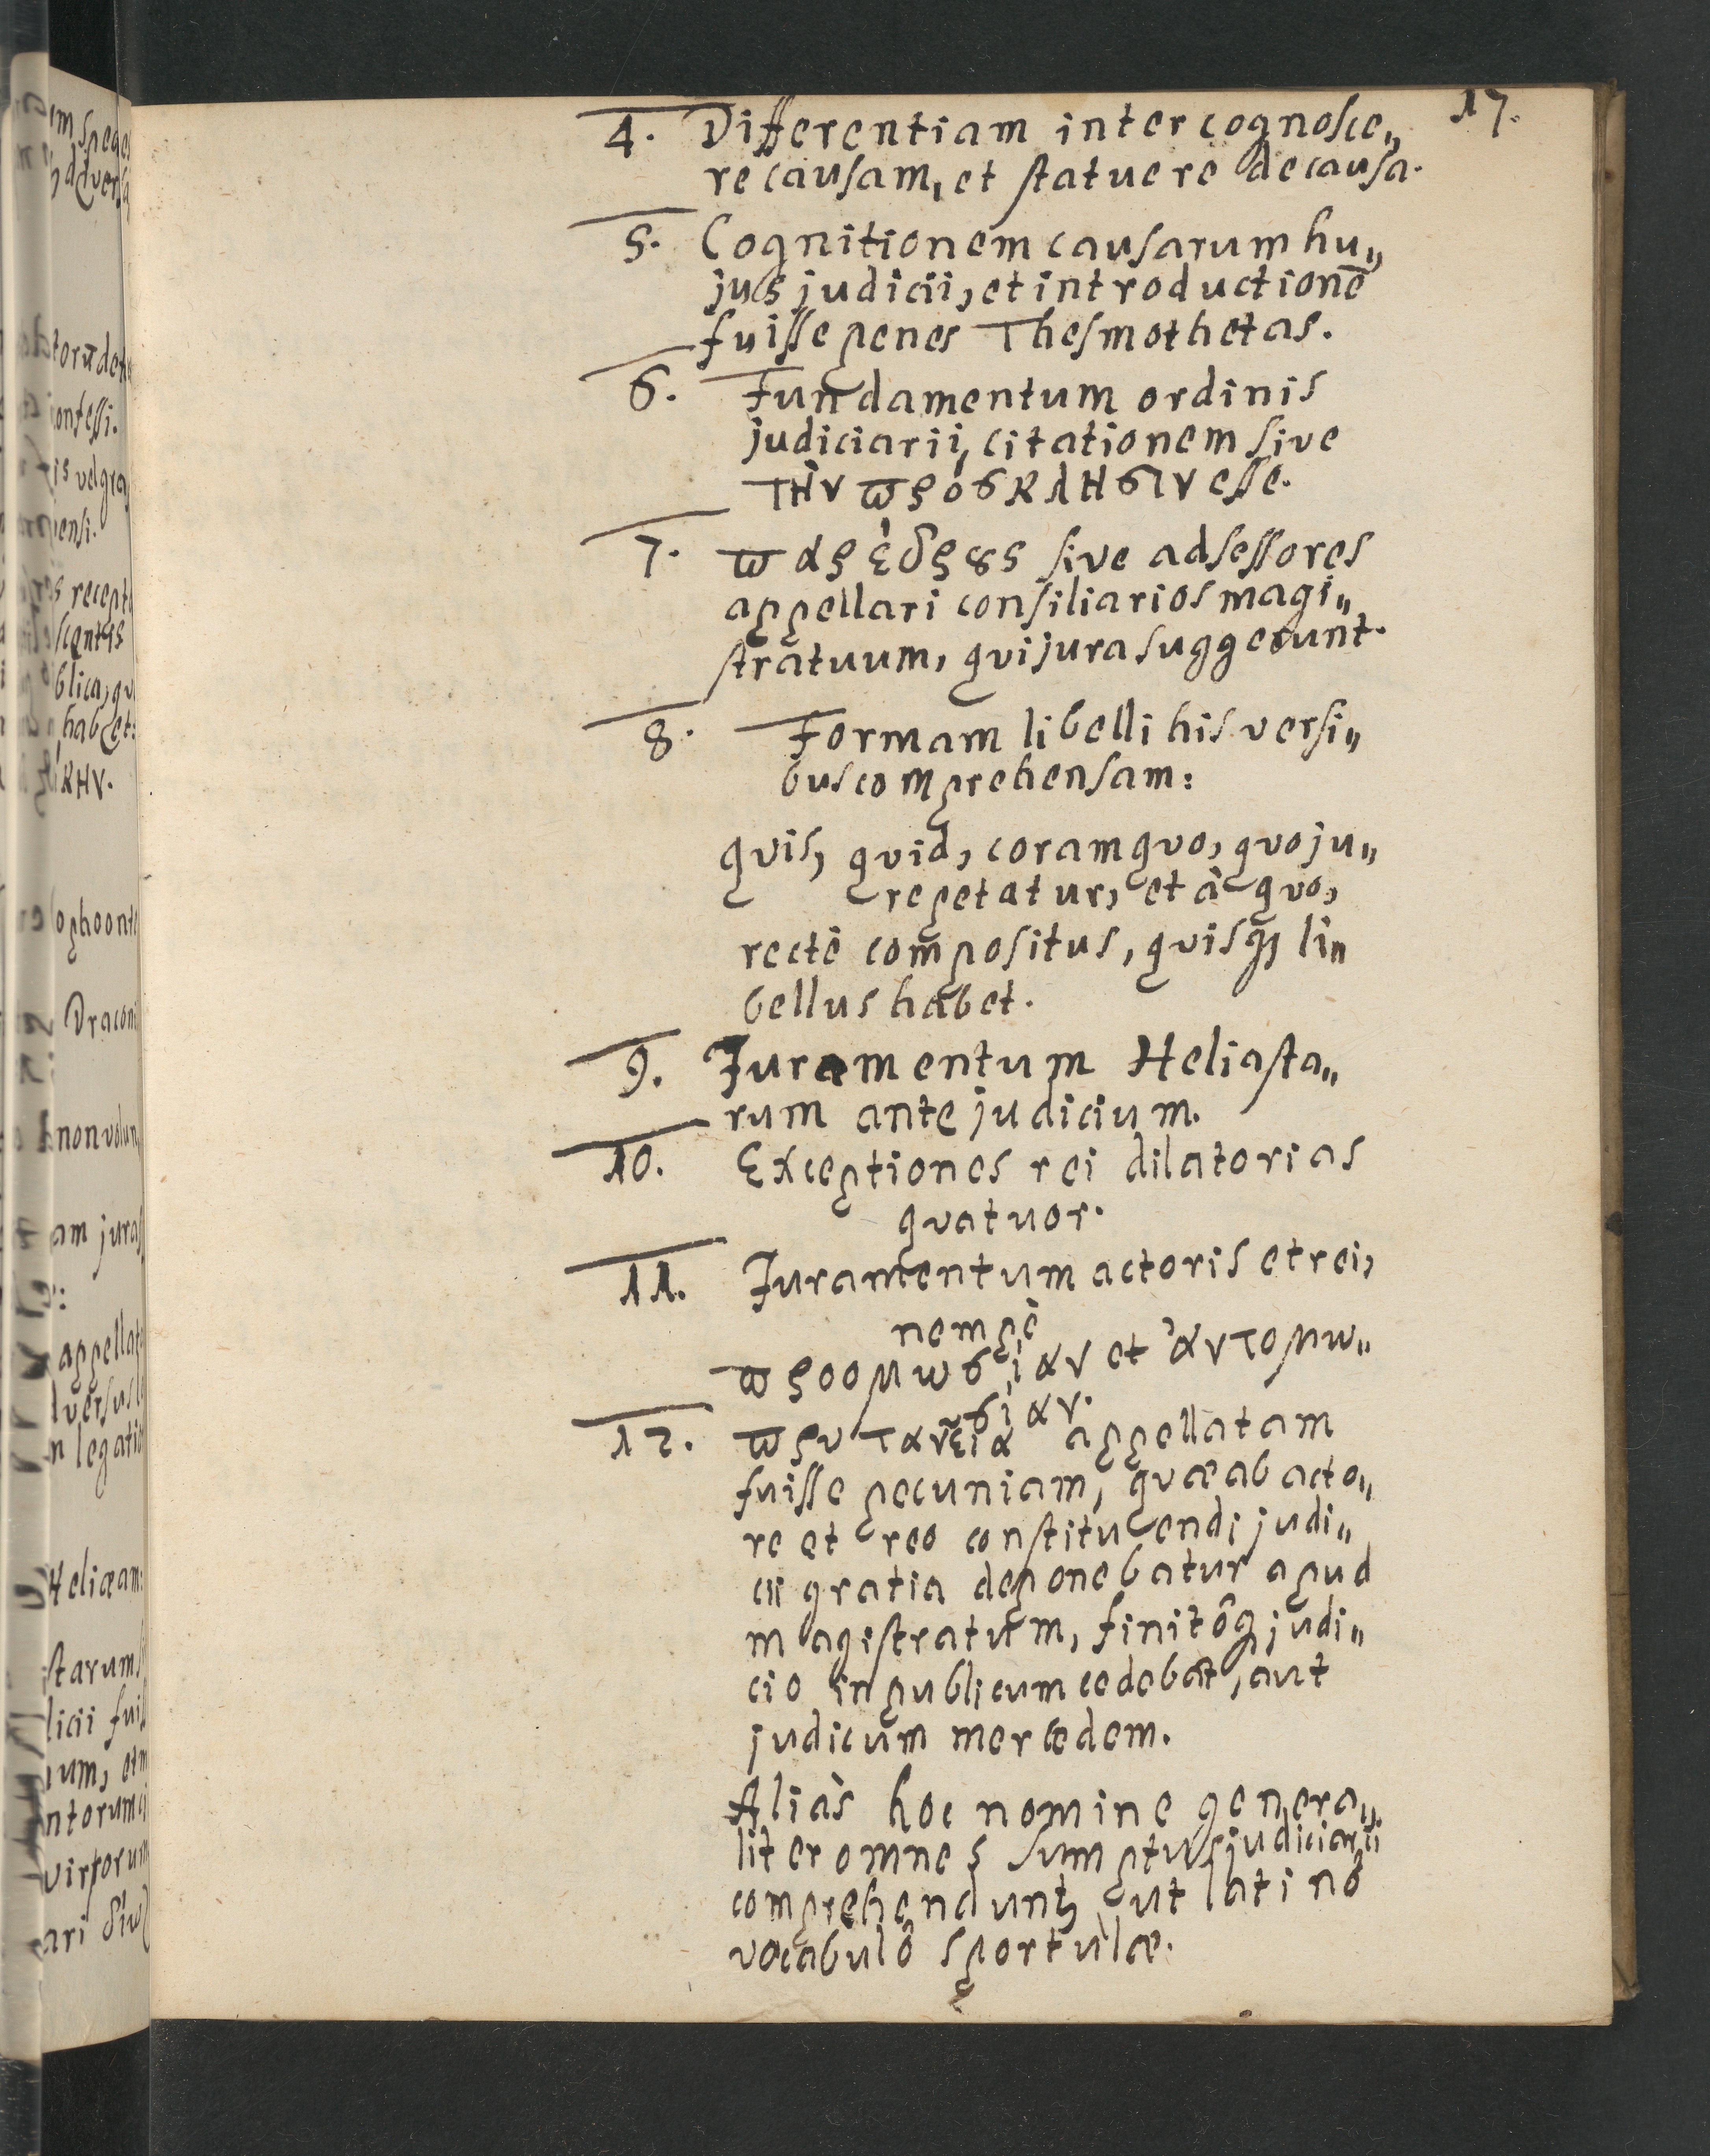 17.
4. Differentiam inter cognosce„
re causam, et statuere de causa.
5. Cognitionem causarum hu„
jus judicii, et introductionē
fuisse penes Thesmothetas.
6. Fundamentum ordinis
judiciarii, citationem sive
τὴν πρόσκλησιν esse.
7. παρέδρους sive adsessores
appellari consiliarios magi„
stratuum, qui jura suggerunt.
8. Formam libelli his versi„
bus comprehensam:
quis, quid, coram quo, quo ju„
re petatur, et à quo,
rectè compositus, quisq; li„
bellus habet.
9. Juramentum Heliasta„
rum ante judicium.
10. Exceptiones rei dilatorias
quatuor.
11. Juramentum actoris et rei,
nempè
προομωσίαν et ἀντομω„
σίαν.
12. πρυτανεῖα appellatam
fuisse pecuniam, quæ ab acto„
re et reo constituendi judi„
cii gratia deponebatur apud
magistratum, finitôq; judi„
cio in publicum cedebat, aut
judicum mercedem.
Aliàs hoc nomine genera„
liter omnes sumptus judiciarii
comprehendunt, ut latinô
vocabulô sportulæ.